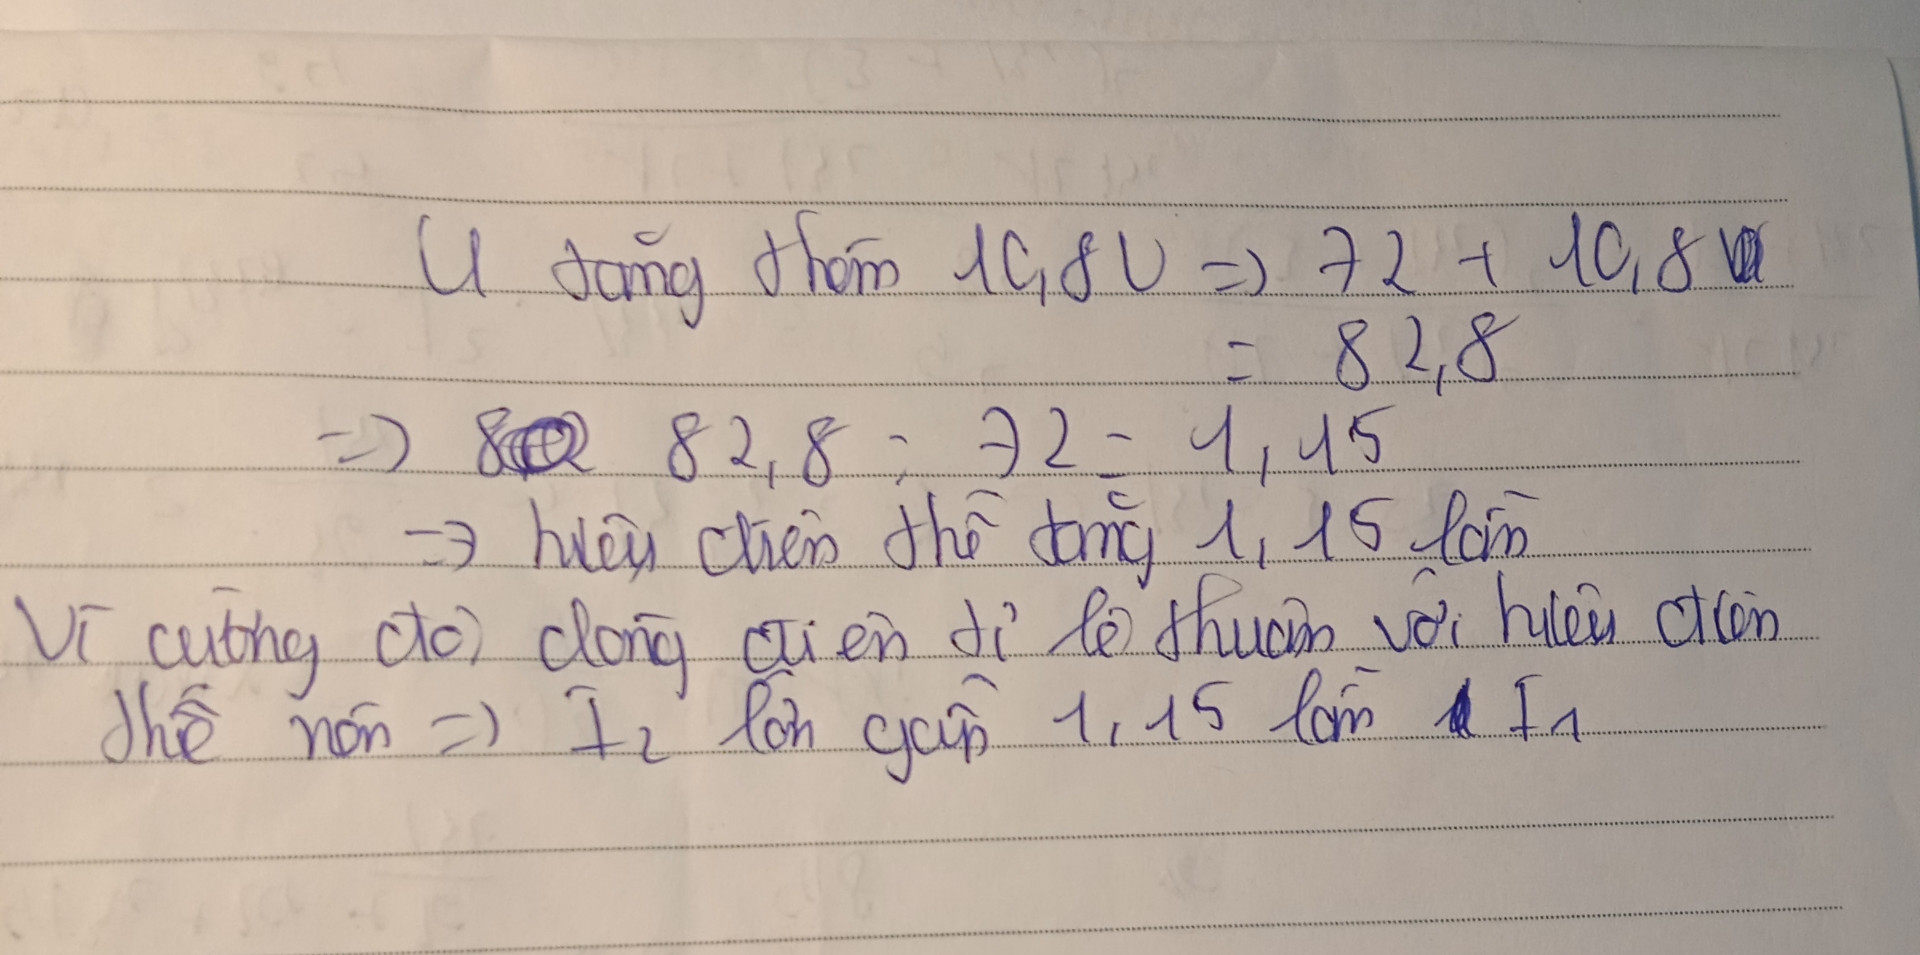 U tăng thêm 10,8V => 72 + 10,8
= 82,8
=> 82,8 : 72 = 1,15
=> hiệu điện thế tăng 1,15 lần
Vì cường độ dòng điện tỉ lệ thuận với hiệu điện
thế nên => I2 lớn gấp 1,15 lần I1